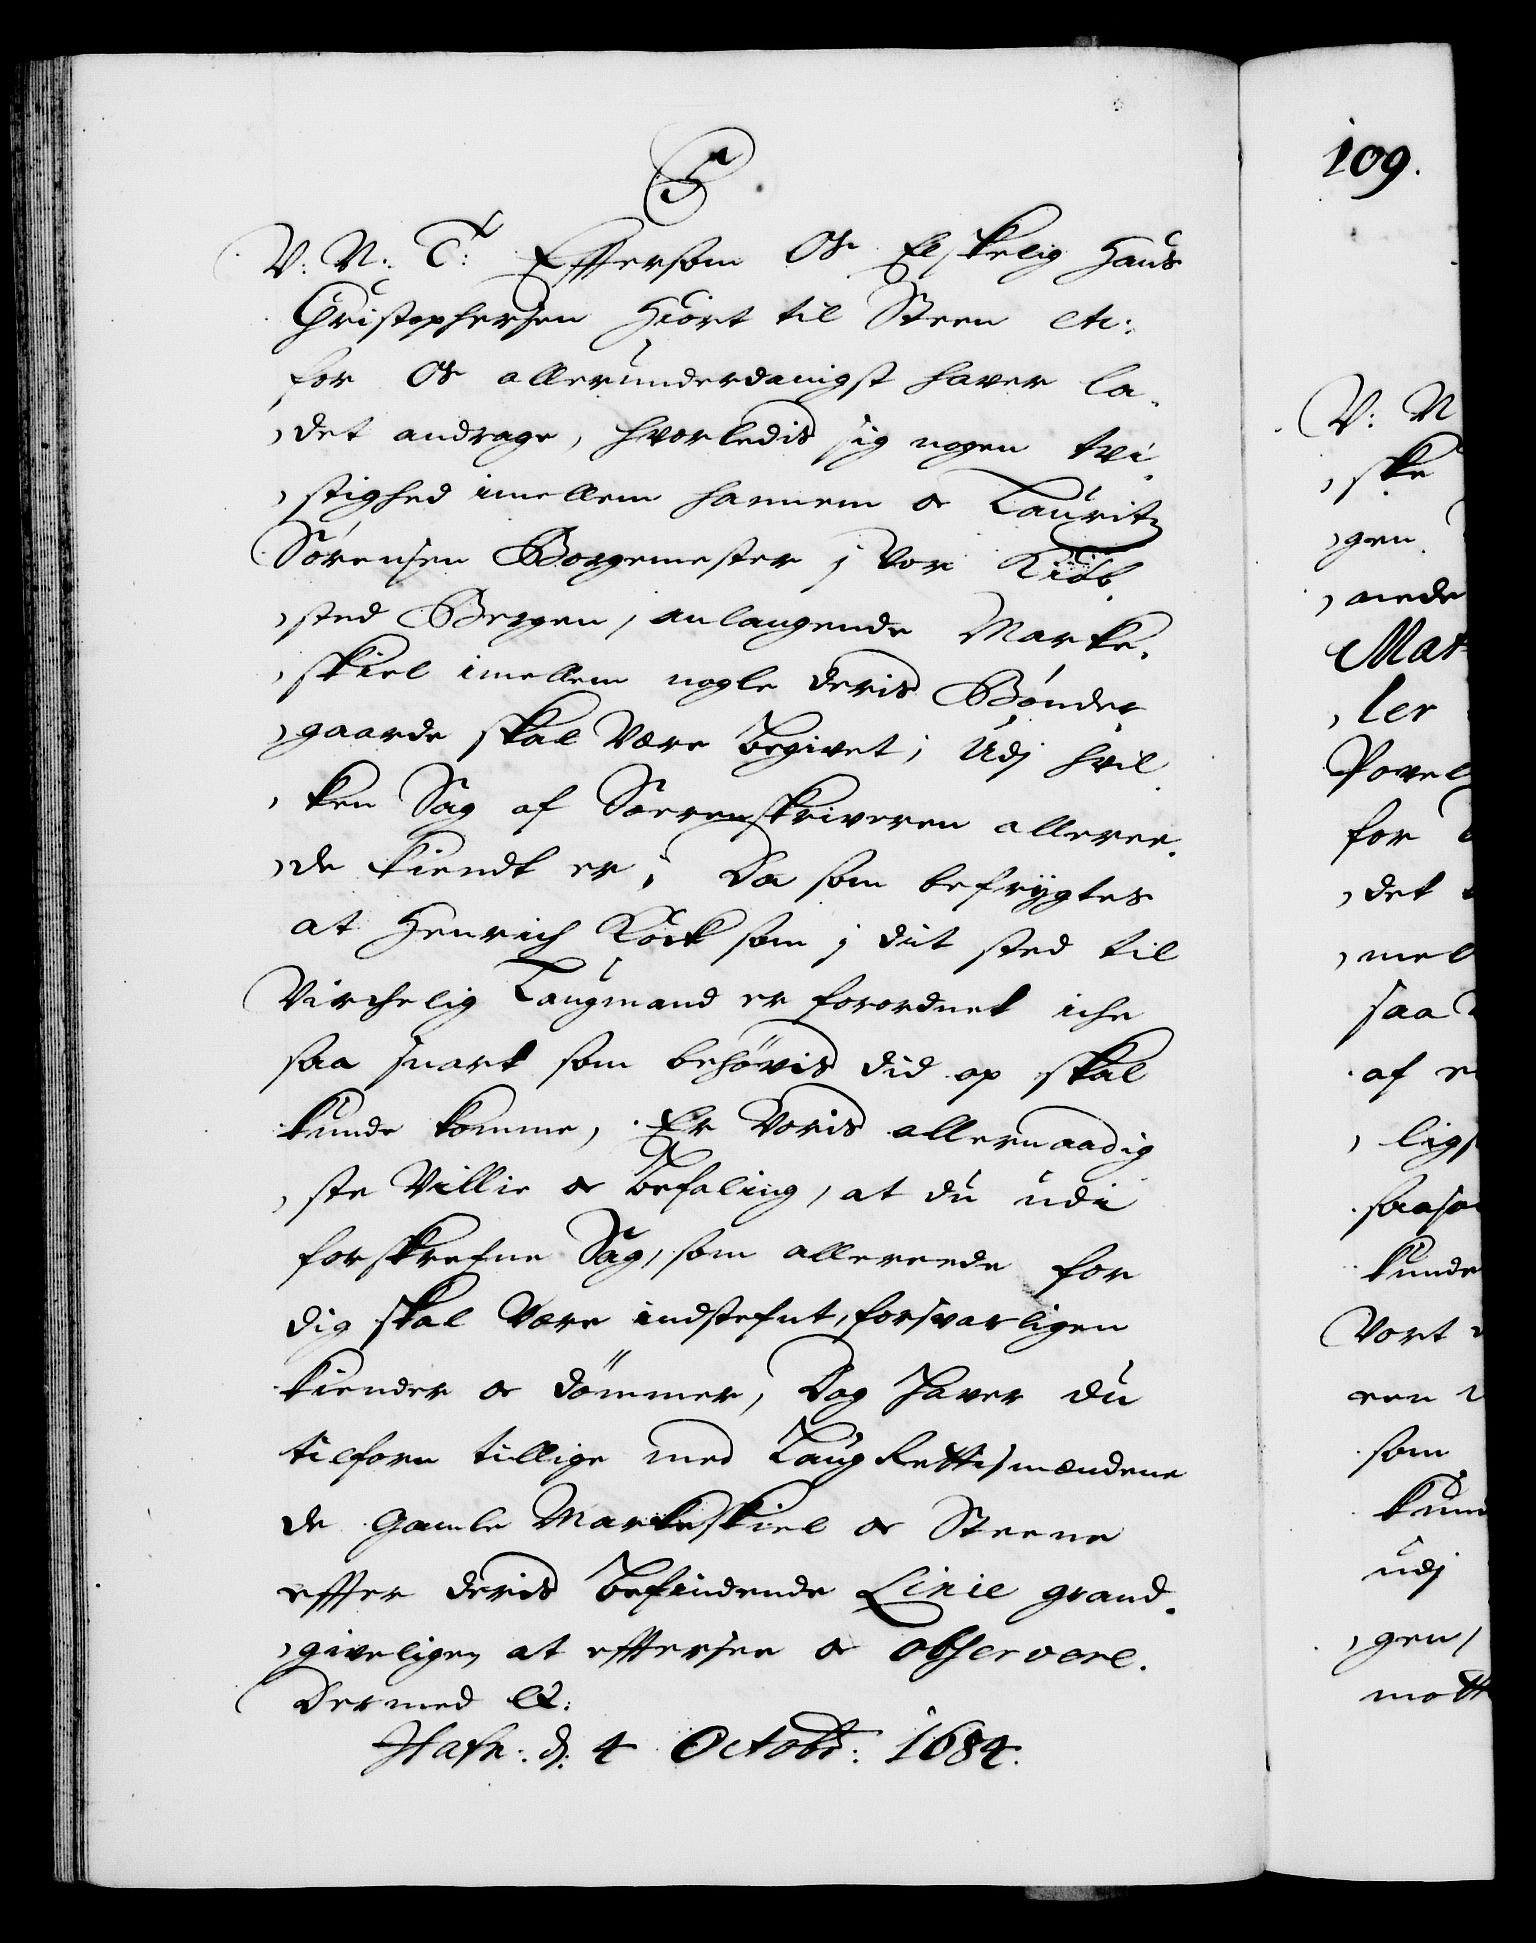 C5.
109.
V: N: T: Effersom Os Elskelig Hans
Christophersen Hiort til Steen etc:
for Os allerunderdanigst hafver la-
det andrage, hvorledis sig nogen tvi-
stighed imellem hannem oc Lauritz
Sørensen Borgemester j Vor Kiøb-
sted Bergen, anlangende Marke-
skiel imellem nogle deris Bønder-
gaarde skal Være begivet; Udj hvil-
ken Sag af Sorenskriveren alleree-
de kiendt er; Da som befrygtes
at Henrich Kock som j dit sted til
Virchelig Laugmand er forordnet iche
saa snart som behøvis did op skal
kunde komme, Er Voris allernaadig-
ste Villie oc Befaling, at du udi
forskrefne Sag, som allereede for
dig skal Være indstefnt, forsvarligen
kiender oc dømmer, Dog haver du
tilforn tillige med LaugRettismændene
de Gamle Markeskiel oc Steene
effter deris befindende Linie grand-
giveligen at effersee oc observere.
Dermed etc:
Hafn: d: 4 Octobr: 1684.
V: N
ske
gen
mede
Mat
ler
Povel
for
det
mel
saa
af
lig
saasom
kunde
Vort
een
som
kund
udj
gen,
mott